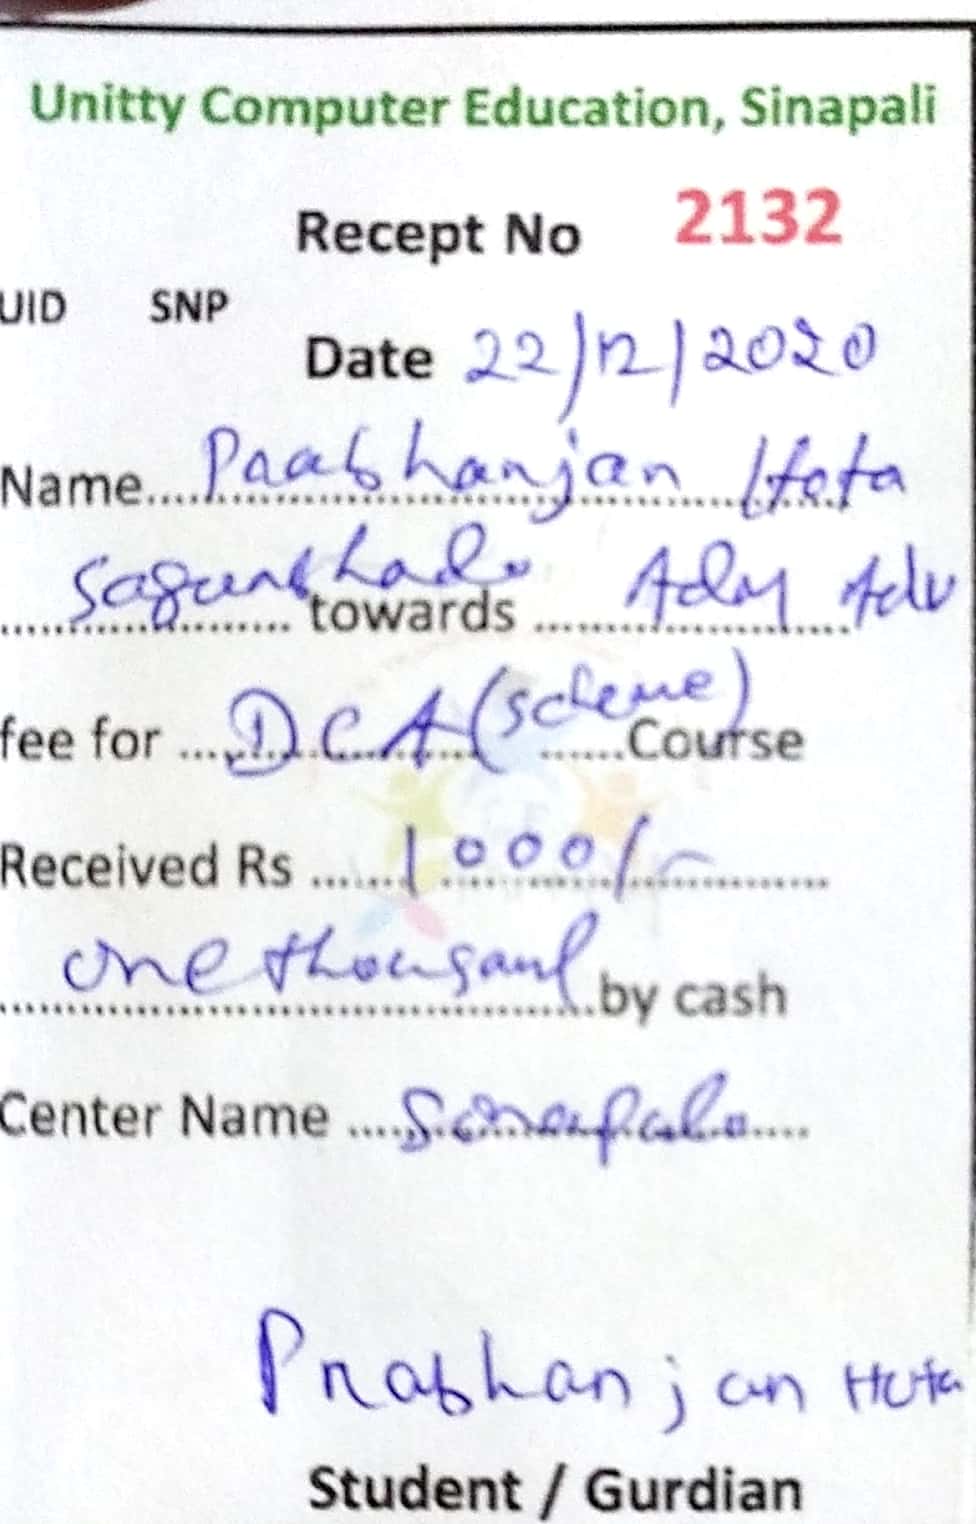 Unitty Computer Education, Sinapali
Recept No 2132
UID SNP
Date 22/12/2020
Name.... Prabhanjan Hota
.................... towards .... Adm Adv
fee for .... DCA (scheme) ......Course
Received Rs ...... 1000/-
one thousand by cash
Center Name .... Sinapali ....
Prabhanjan Hota
Student / Gurdian